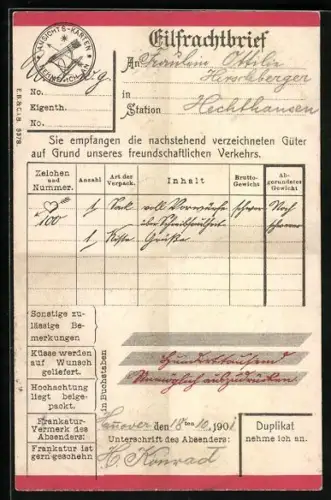 ANSICHTS-KARTEN
Eilfrachtbrief
An Fräulein Ottilie
Hirschberger
in
Station Hechthausen
No.
Eigenth.
No.
E.B.&C.i.B. 5378.
Sie empfangen die nachstehend verzeichneten Güter
auf Grund unseres freundschaftlichen Verkehrs.
Zeichen und Nummer.
Anzahl
Art der Verpack.
Inhalt
Brutto-Gewicht
Ab-gerundetes Gewicht
100 1 Sack voll Vorwürfe schwer Noch
über Schreibfaulheit schwerer
1 Kiste Grüße
Sonstige zu-
lässige Be-
merkungen
Küsse werden
auf Wunsch
geliefert.
Hochachtung
liegt beige-
packt.
Frankatur-
Vermerk des
Absenders:
Frankatur ist
gern geschehn
in Buchstaben
Hunderttausend
Unmöglich auszudrücken
Hannover den 18ten 10. 1901
Unterschrift des Absenders:
H. Konrad
Duplikat
nehme ich an.